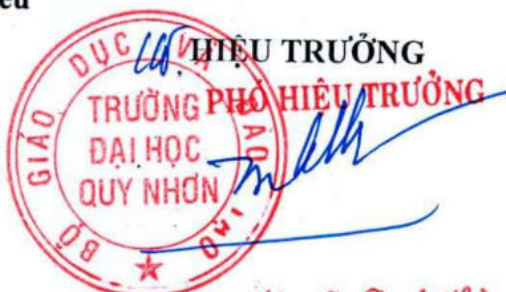 HIỆU TRƯỞNG
PHÓ HIỆU TRƯỞNG
BỘ GIÁO DỤC VÀ ĐÀO TẠO
TRƯỜNG
ĐẠI HỌC
QUY NHƠN